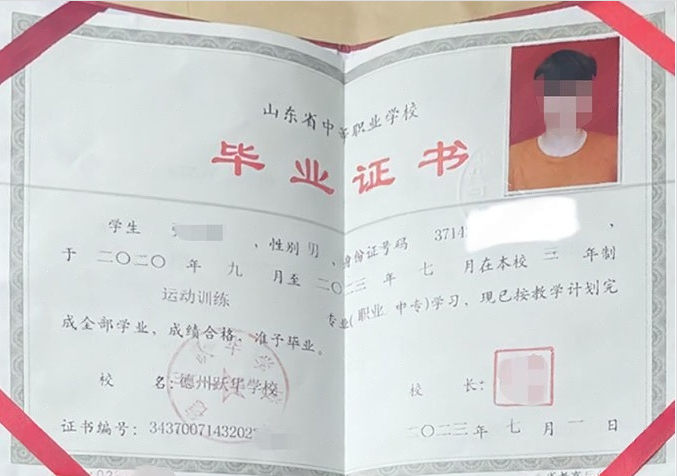 山东省中等职业学校
毕业证书
学生 张 、性别 男 、身份证号码 3714 、
于 二〇二〇 年 九 月至 二〇二三 年 七 月在本校 三 年制
运动训练 专业(职业 中专)学习、现已按教学计划完
成全部学业、成绩合格、准予毕业。
校 名:德州跃华学校 校 长:
证书编号: 343700714320 二〇二三 年 七 月 一 日